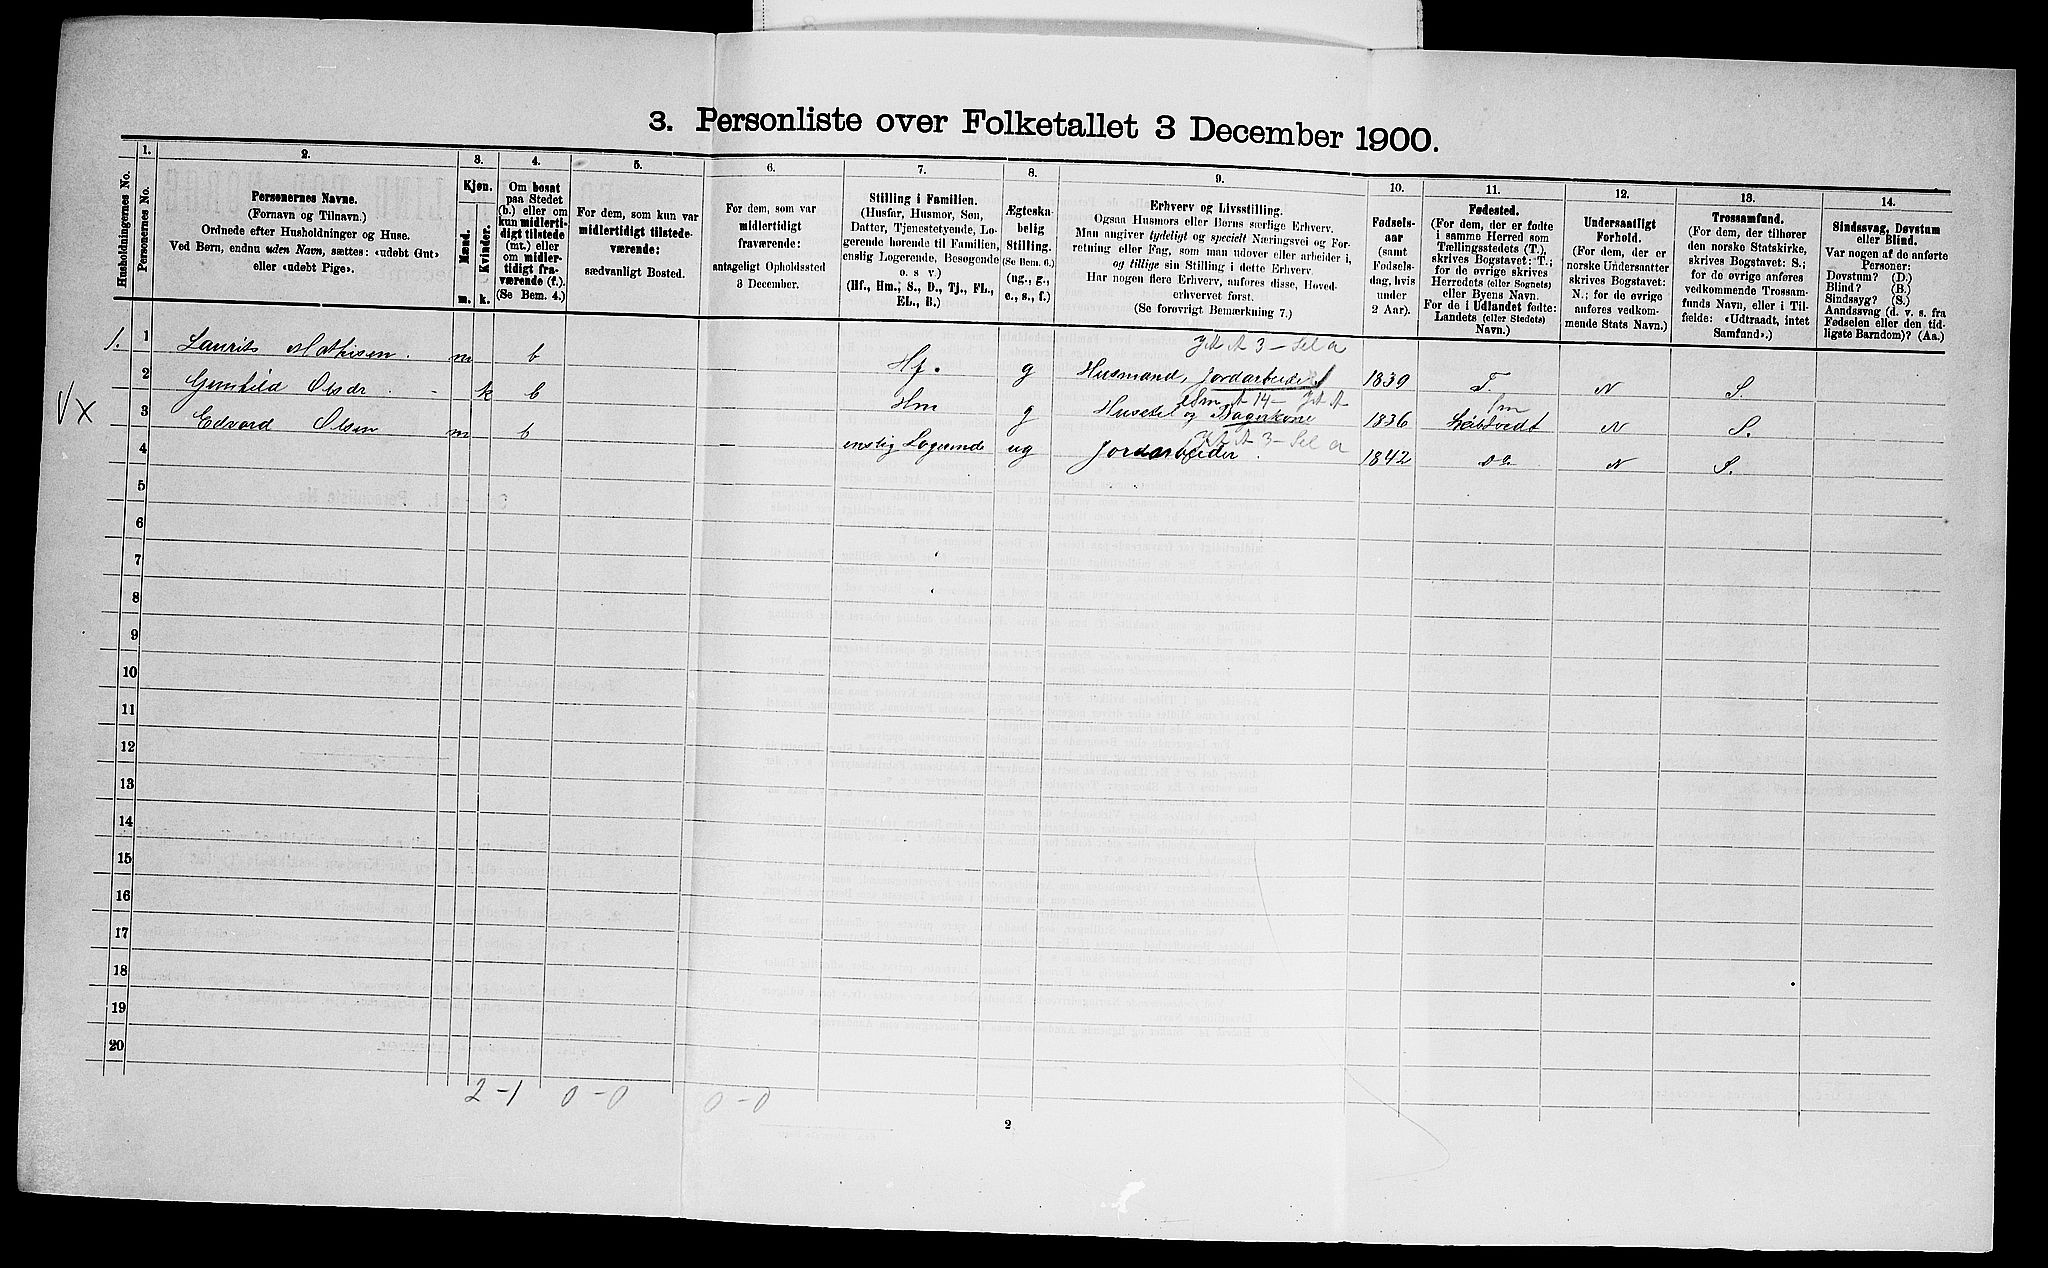 3. Personliste over Folketallet 3 December 1900.
Husholdningernes No.
1.
Personernes No.
2.
Personernes Navne.
(Fornavn og Tilnavn.)
Ordnede efter Husholdninger og Huse.
Ved Børn, endnu uden Navn, sættes: «udøbt Gut»
eller «udøbt Pige».
3.
Kjøn.
Mænd.
Kvinder.
m. k.
4.
Om bosat
paa Stedet
(b.) eller om
kun midlerti-
digt tilstede
(mt.) eller
om midler-
tidigt fra-
værende (f.).
(Se Bem. 4.)
5.
For dem, som kun var
midlertidigt tilstede-
værende:
sædvanligt Bosted.
6.
For dem, som var
midlertidigt
fraværende:
antageligt Opholdssted
3 December.
7.
Stilling i Familien.
(Husfar, Husmor, Søn,
Datter, Tjenestetyende, Lo-
gerende hørende til Familien,
enslig Logerende, Besøgende
o. s v.)
(Hf., Hm., S., D., Tj., FL.,
EL., B.)
8.
Ægteska-
belig
Stilling.
(Se Bem. 6.)
(ug., g.,
e., s., f.)
9.
Erhverv og Livsstilling.
Ogsaa Husmors eller Børns særlige Erhverv.
Man angiver tydeligt og specielt Næringsvei og For-
retning eller Fag, som man udover eller arbeider i,
og tillige sin Stilling i dette Erhverv.
Har nogen flere Erhverv, anføres disse, Hoved-
erhvervet først.
(Se forøvrigt Bemærkning 7.)
10.
Fødsels-
aar
(samt
Fødsels-
dag, hvis
under
2 Aar).
11.
Fødested.
(For dem, der er fødte
i samme Herred som
Tællingsstedets (T.),
skrives Bogstavet: T.;
for de øvrige skrives
Herredets (eller Sognets)
eller Byens Navn.
For de i Udlandet fødte:
Landets (eller Stedets)
Navn.)
12.
Undersaatligt
Forhold.
(For dem, der er
norske Undersaatter
skrives Bogstavet:
N.; for de øvrige
anføres vedkom-
mende Stats Navn.)
13.
Trossamfund.
(For dem, der tilhører
den norske Statskirke,
skrives Bogstavet: S.;
for de øvrige anføres
vedkommende Trossam-
funds Navn, eller i Til-
fælde: «Udtraadt, intet
Samfund».)
14.
Sindssvag, Døvstum
eller Blind.
Var nogen af de anførte
Personer:
Døvstum? (D.)
Blind? (B.)
Sindssyg? (S.)
Aandssvag (d. v. s. fra
Fødselen eller den tid-
ligste Barndom)? (Aa.)
1. 1 Laurits Mathisen. m b Hf. g Husmand, Jordarbeider 1839 T. N S.
2 Gunhild Olsdr k b Hm g Husstel og Bagerkone 1836 N S.
Vx 3 Edvard Olsen m b enslig Logerende ug Jordarbeider. 1842 do N S.
4
5
6
7
8
9
10
11
12
13
14
15
16
17
18
19
20
2-1 0-0 0-0
2